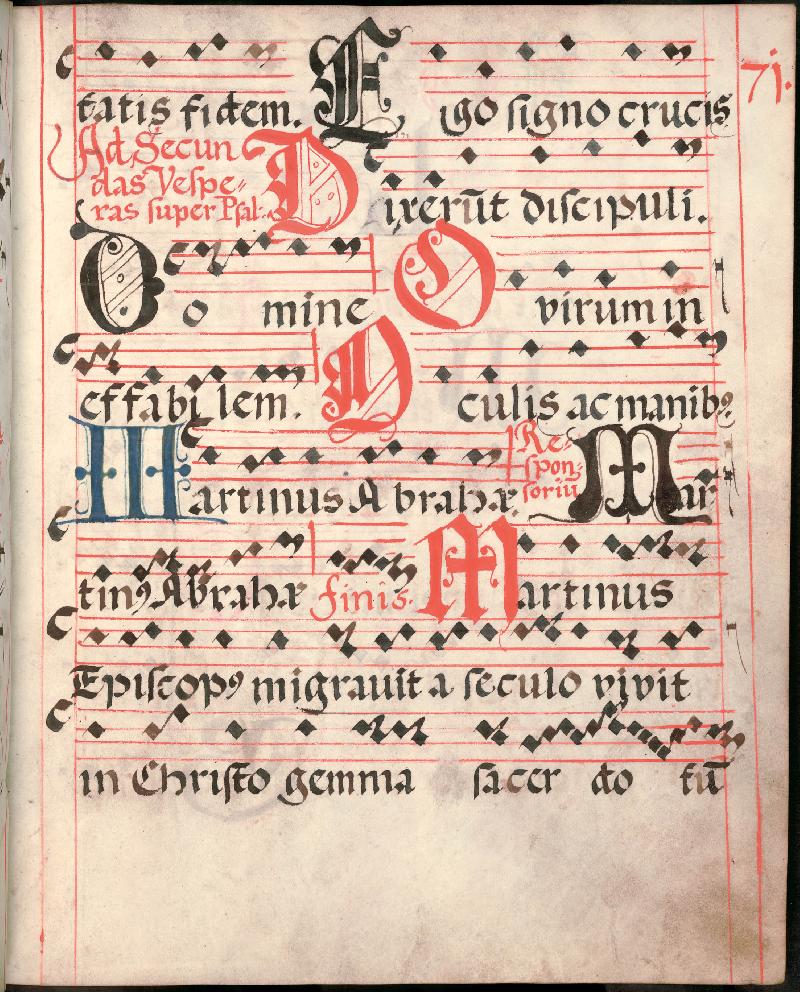 71.
tatis fidem. Ego signo crucis
Ad Secun
das Vespe-
ras super Psal. Dixerūt discipuli.
Domine O virum in
effabilem. Oculis ac manibꝰ
Martinus Abrahæ. Re-
spon-
soriū Mar
tinꝰ Abrahæ finis. Martinus
Episcopꝰ migrauit a seculo vivit
in Christo gemma sacer do tū